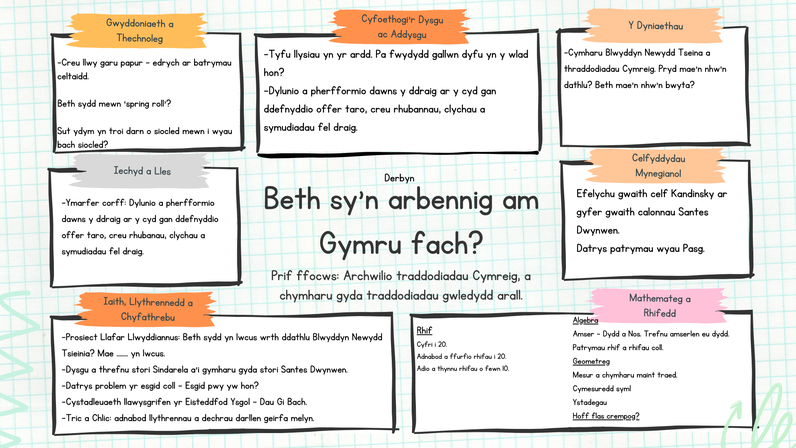 Gwyddoniaeth a
Thechnoleg
-Creu llwy garu papur - edrych ar batrymau
celtaidd.
Beth sydd mewn 'spring roll'?
Sut ydym yn troi darn o siocled mewn i wyau
bach siocled?
Cyfoethogi'r Dysgu
ac Addysgu
-Tyfu llysiau yn yr ardd. Pa fwydydd gallwn dyfu yn y wlad
hon?
-Dylunio a pherfformio dawns y ddraig ar y cyd gan
ddefnyddio offer taro, creu rhubannau, clychau a
symudiadau fel draig.
Y Dyniaethau
-Cymharu Blwyddyn Newydd Tseina a
thraddodiadau Cymreig. Pryd mae'n nhw'n
dathlu? Beth mae'n nhw'n bwyta?
Iechyd a Lles
-Ymarfer corff: Dylunio a pherfformio
dawns y ddraig ar y cyd gan ddefnyddio
offer taro, creu rhubanau, clychau a
symudiadau fel draig.
Derbyn
Beth sy'n arbennig am
Gymru fach?
Prif ffocws: Archwilio traddodiadau Cymreig, a
chymharu gyda traddodiadau gwledydd arall.
Celfyddydau
Mynegianol
Efelychu gwaith celf Kandinsky ar
gyfer gwaith calonnau Santes
Dwynwen.
Datrys patrymau wyau Pasg.
Iaith, Llythrennedd a
Chyfathrebu
-Prosiect Llafar Llwyddiannus: Beth sydd yn lwcus wrth ddathlu Blwyddyn Newydd
Tsieinia? Mae ___ yn lwcus.
-Dysgu a threfnu stori Sindarela a'i gymharu gyda stori Santes Dwynwen.
-Datrys problem yr esgid coll - Esgid pwy yw hon?
-Cystadleuaeth llawysgrifen yr Eisteddfod Ysgol - Dau Gi Bach.
-Tric a Chlic: adnabod llythrennau a dechrau darllen geirfa melyn.
Mathemateg a
Rhifedd
Rhif
Cyfri i 20.
Adnabod a ffurfio rhifau i 20.
Adio a thynnu rhifau o fewn 10.
Algebra
Amser - Dydd a Nos. Trefnu amserlen eu dydd.
Patrymau rhif a rhifau coll.
Geometreg
Mesur a chymharu maint traed.
Cymesuredd syml
Ystadegau
Hoff flas crempog?